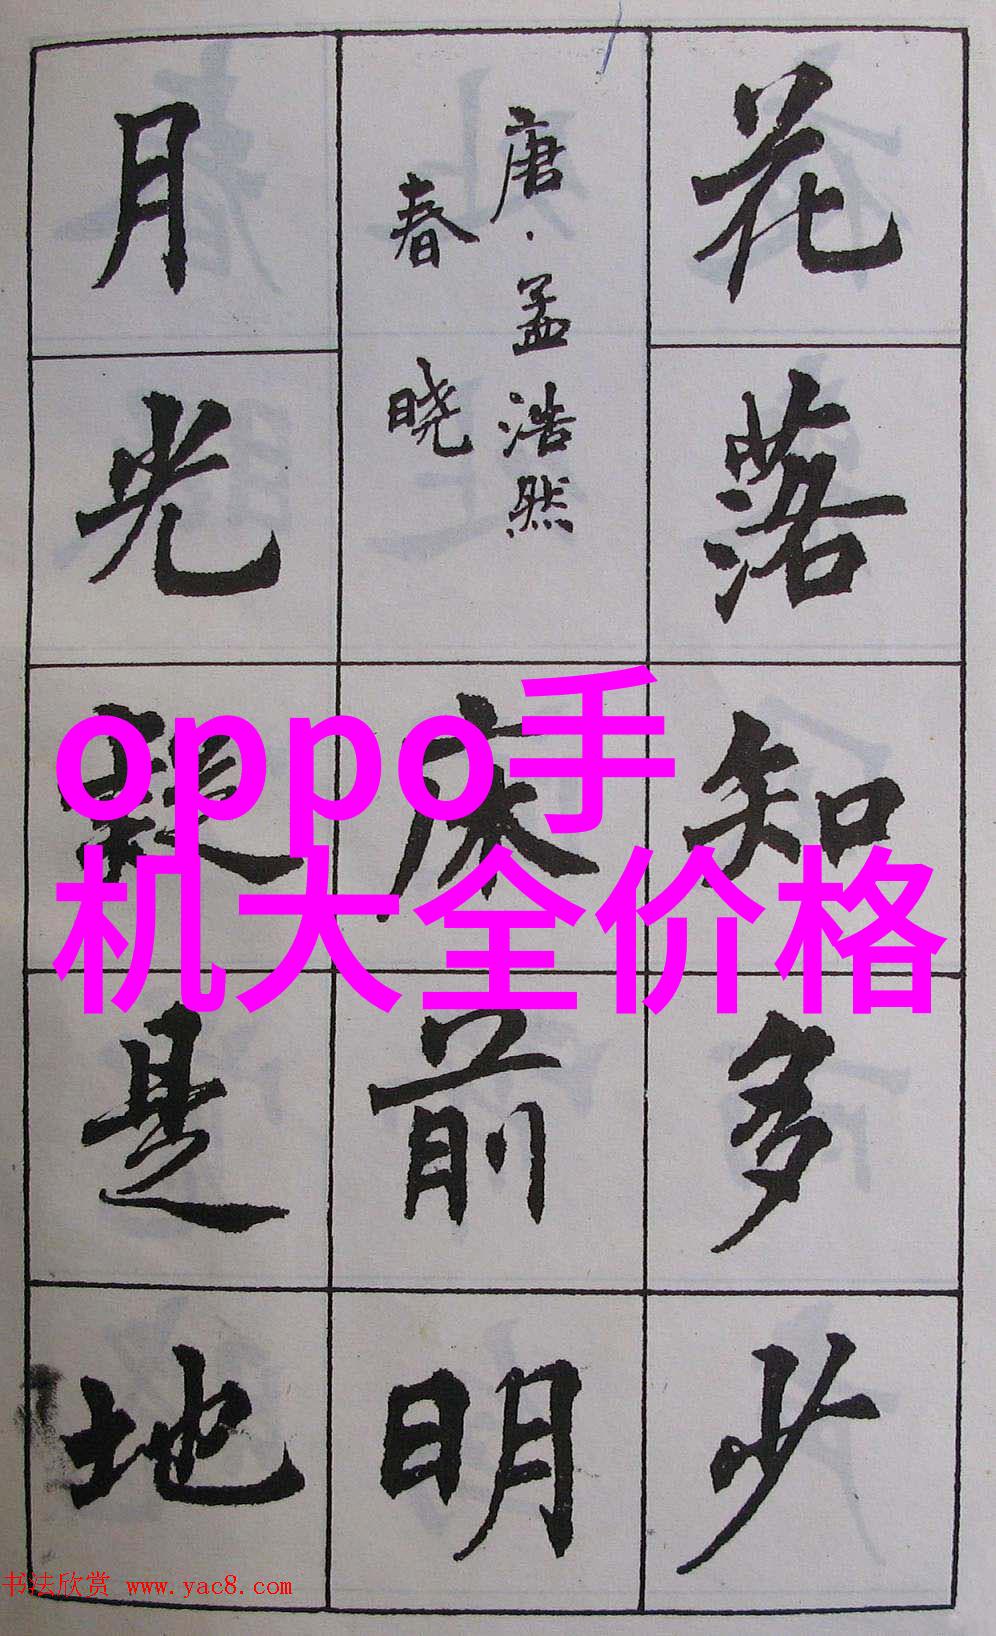 花落知多少
唐·孟浩然
春晓
床前明
月光疑是地
oppo手
机大全价格
书法欣赏 www.yac8.com